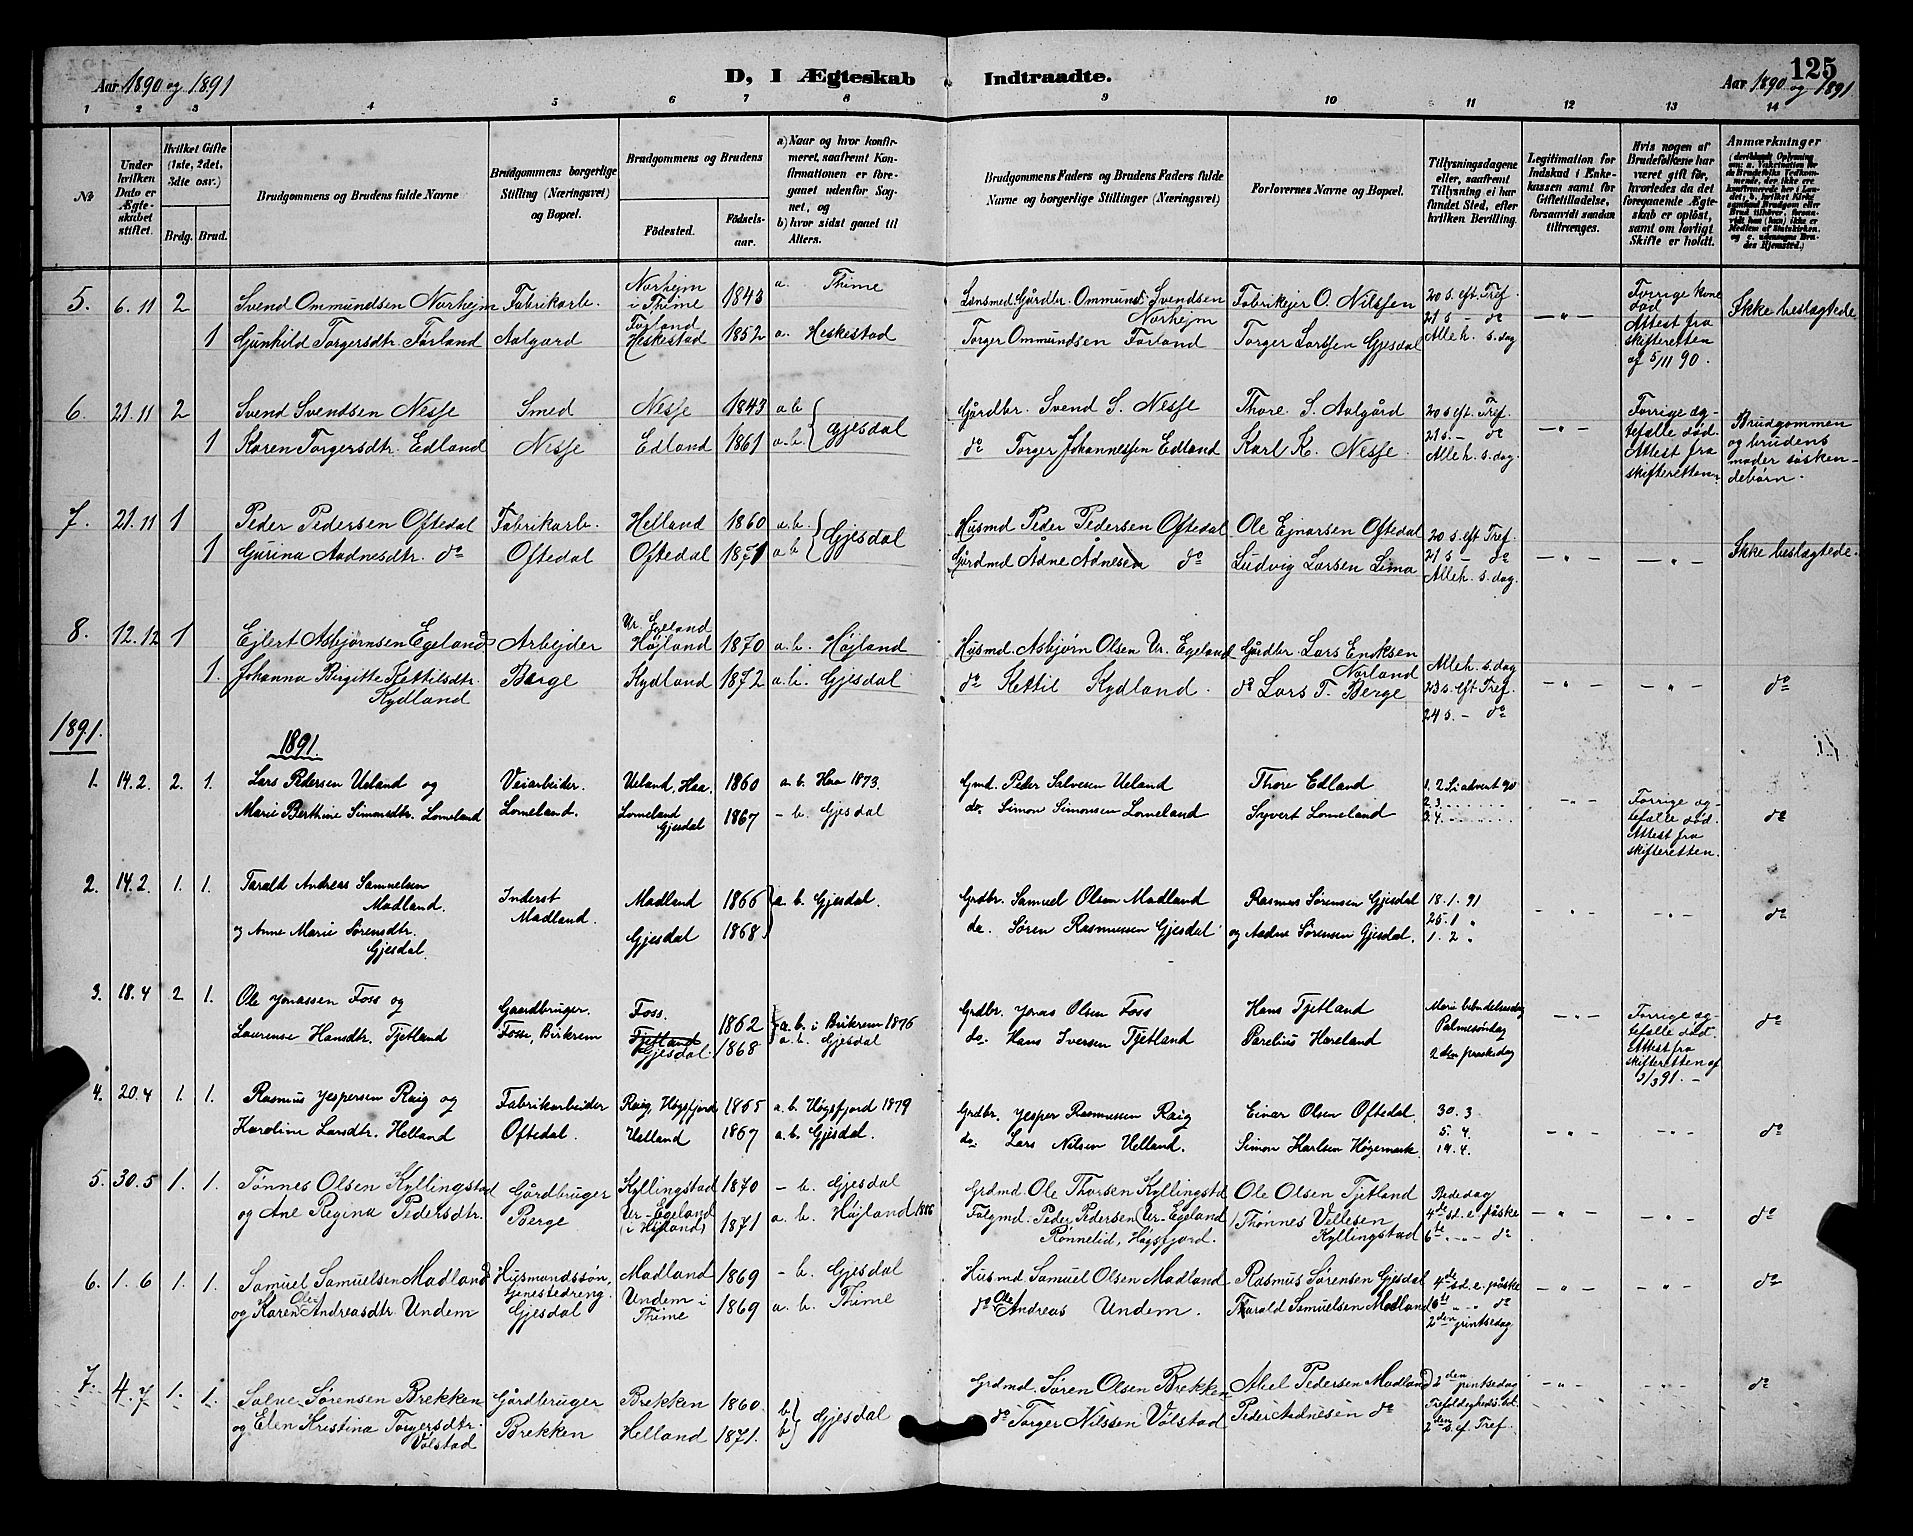 Aar 1890 og 1891
D, I Ægteskab Indtraadte.
125
Aar 1890 og 1891.
1 2 3 4 5 6 7 8 9 10 11 12 13 14
№
Under hvilken Dato er Ægteskabet stiftet.
Hvilket Gifte (1ste, 2det, 3die osv.)
Brdg. Brud.
Brudgommens og Brudens fulde Navne
Brudgommens borgerlige Stilling (Næringsvei) og Bopæl.
Brudgommens og Brudens
Fødested. Fødselsaar.
a) Naar og hvor konfirmeret, saafremt Konfirmationen er foregaaet udenfor Sognet, og
b) hvor sidst gaaet til Alters.
Brudgommens Faders og Brudens Faders fulde Navne og borgerlige Stillinger (Næringsvei)
Forlovernes Navne og Bopæl.
Tillysningsdagene eller, saafremt Tillysning ei har fundet Sted, efter hvilken Bevilling.
Legitimation for Indskud i Enkekassen samt for Giftetilladelse, forsaavidt saadan tiltrænges.
Hvis nogen af Brudefolkene har været gift før, hvorledes da det foregaaende Ægteskab er opløst, samt om lovligt Skifte er holdt.
Anmærkninger
5. 6.11 2 Svend Ommundsen Norhejm Fabrikarb. Norhejm i Thime 1843 a. Thime Gårdbr. Ommund Svendsen Norhejm Fabrikejer O. Nilssen 20 s. eft. Tref. Forrige Kone død Ikke beslægtede
1 Gunhild Torgersdtr. Førland Aalgaard Førland Heskestad 1852 a. Heskestad Torger Ommundsen Førland Torger Larssen Gjesdal 21 s. - do Alleh. s. dag - " - Attest fra skifteretten af 5/11 90.
6. 21.11 2 Svend Svendsen Nesse Smed Nesse 1843 a b Gjesdal Gårdbr. Svend S. Nesse Thore S. Aalgård 20 s. eft. Tref. Forrige ægtefælle død. Brudgommen og brudens
1 Karen Torgersdtr. Edland Nesse Edland 1861 a. b. do Torger Johannessen Edland Karl K. Nesse. 21 s. - do Alleh. s. dag. - " - Attest fra skifteretten moder søskendebørn.
7. 21.11 1 Peder Pedersen Oftedal Fabrikarb. Helland 1860 a. b. Gjesdal Husmd Peder Pedersen Oftedal Ole Ejnarsen Oftedal 20 s. eft Tref.
1 Gurina Aadnesdtr. do Oftedal Oftedal 1871 a b Gårdmd Ådne Ådnesen do Ludvig Larsen Lima 21 s - do Alleh. s. dag. - " - - " - Ikke beslægtede.
8. 12.12 1 Ejlert Asbjørnsen Egeland Arbejder Ur. Egeland Højland 1870 a. b. Højland Husmd Asbjørn Olsen Ur. Egeland Gårdbr. Lars Eriksen Norland Alleh. s. dag
1. Johanna Birgitte Kettilsdtr. Kydland Berge Kydland 1872 a. b. Gjesdal do Kettil Kydland. do Lars T. Berge 23 s. eft Tref. 24 s. - do - " - - " - do
1891.
1891.
1. 14.2. 2. 1. Lars Pedersen Ueland og Veiarbeider. Ueland, Haa. 1860 a. b. Haa 1873. Gmd. Peder Salvesen Ueland Thore Edland 1. 2 S. i advent 90
Marie Berthine Simonsdtr. Lomeland Lomeland. Lomeland Gjesdal 1867 - b. Gjesdal do. Simon Simonsen Lomeland Syvert Lomeland 2. 3. 3. 4. - " - Forrige ægtefælle død. Attest fra skifteretten. do
2. 14.2. 1. 1. Tarald Andreas Samuelsen Madland. Inderst Madland. Madland 1866 a. b. Gjesdal. Grdbr. Samuel Olsen Madland Rasmus Sørensen Gjesdal 18. 1. 91
og Anne Marie Sørensdtr. Gjesdal. Gjesdal 1868 do. Søren Rasmussen Gjesdal og Aadne Sørensen Gjesdal. 25. 1 " 1. 2 " - " - - " - do
3. 18.4 2 1. Ole Jonassen Foss og Gaardbruger. Foss. 1862 a. b. i Birkrem 1876 Grdbr. Jonas Olsen Foss Hans Tjetland Marie bebudelsesdag
Laurense Hansdtr. Tjetland Fosse, Birkrem Tjetland Gjesdal. 1868 a. b. Gjesdal do. Hans Iversen Tjetland Parelius Hareland Palmesøndag 2den paaskedag - " - Forrige ægtefælle død. Attest fra skifteretten af 3/3 91. - do
4. 20.4 1. 1. Rasmus Jespersen Raig og Fabrikarbeider Raig, Høgsfjord 1865 a. b. Høgsfjord 1879 Grdbr. Jesper Rasmussen Raig Einar Olsen Oftedal 30. 3
Karoline Larsdtr. Helland Oftedal. Helland 1867 a. b. Gjesdal. do. Lars Nilsen Helland. Simon Karlsen Høgemark. 5. 4. 19. 4. - " - - " - do
5. 30.5 1. 1. Tønnes Olsen Kyllingstad Gårdbruger Kyllingstad 1870 - b. Gjesdal Grdmd. Ole Thorsen Kyllingstd Ole Olsen Tjetland Bededag
og Ane Regina Pedersdtr. Berge Ur-Egeland (i Højland) 1871 a. b. Højland 1886 Følgmd. Peder Pedersen (Ur. Egeland Rønnelid, Høgsfjord. Thønnes Vellesen Kyllingstad 4de sd. e. påske 6te - " - do - " - - " - do
6. 1.6 1. 1. Samuel Samuelsen Madland Husmandssøn, Madland 1869 - b. Gjesdal Husmd Samuel Olsen Madland Rasmus Sørensen Gjesdal 4de sd. e. påske
og Karen Ole Andreasdtr. Undem Gjesdal Undem i Thime 1869 a. b. Thime do Ole Andreas Undem. Tarald Samuelsen Madland 6te " " do 2den pintsedag - " - - " - do
7. 4.7 1. 1. Salve Sørensen Brekken Gårdbruger Brekken 1860. b Gjesdal Grdmd. Søren Olsen Brekken Abel Pedersen Madland 2den pintsedag
og Elen Kristina Torgersdtr. Vølstad Brekken Helland 1871. b do Torger Nilssen Vølstad Peder Aadnesen do Trefoldigheds s. 2den s. ef. Tref. - " - - " - do